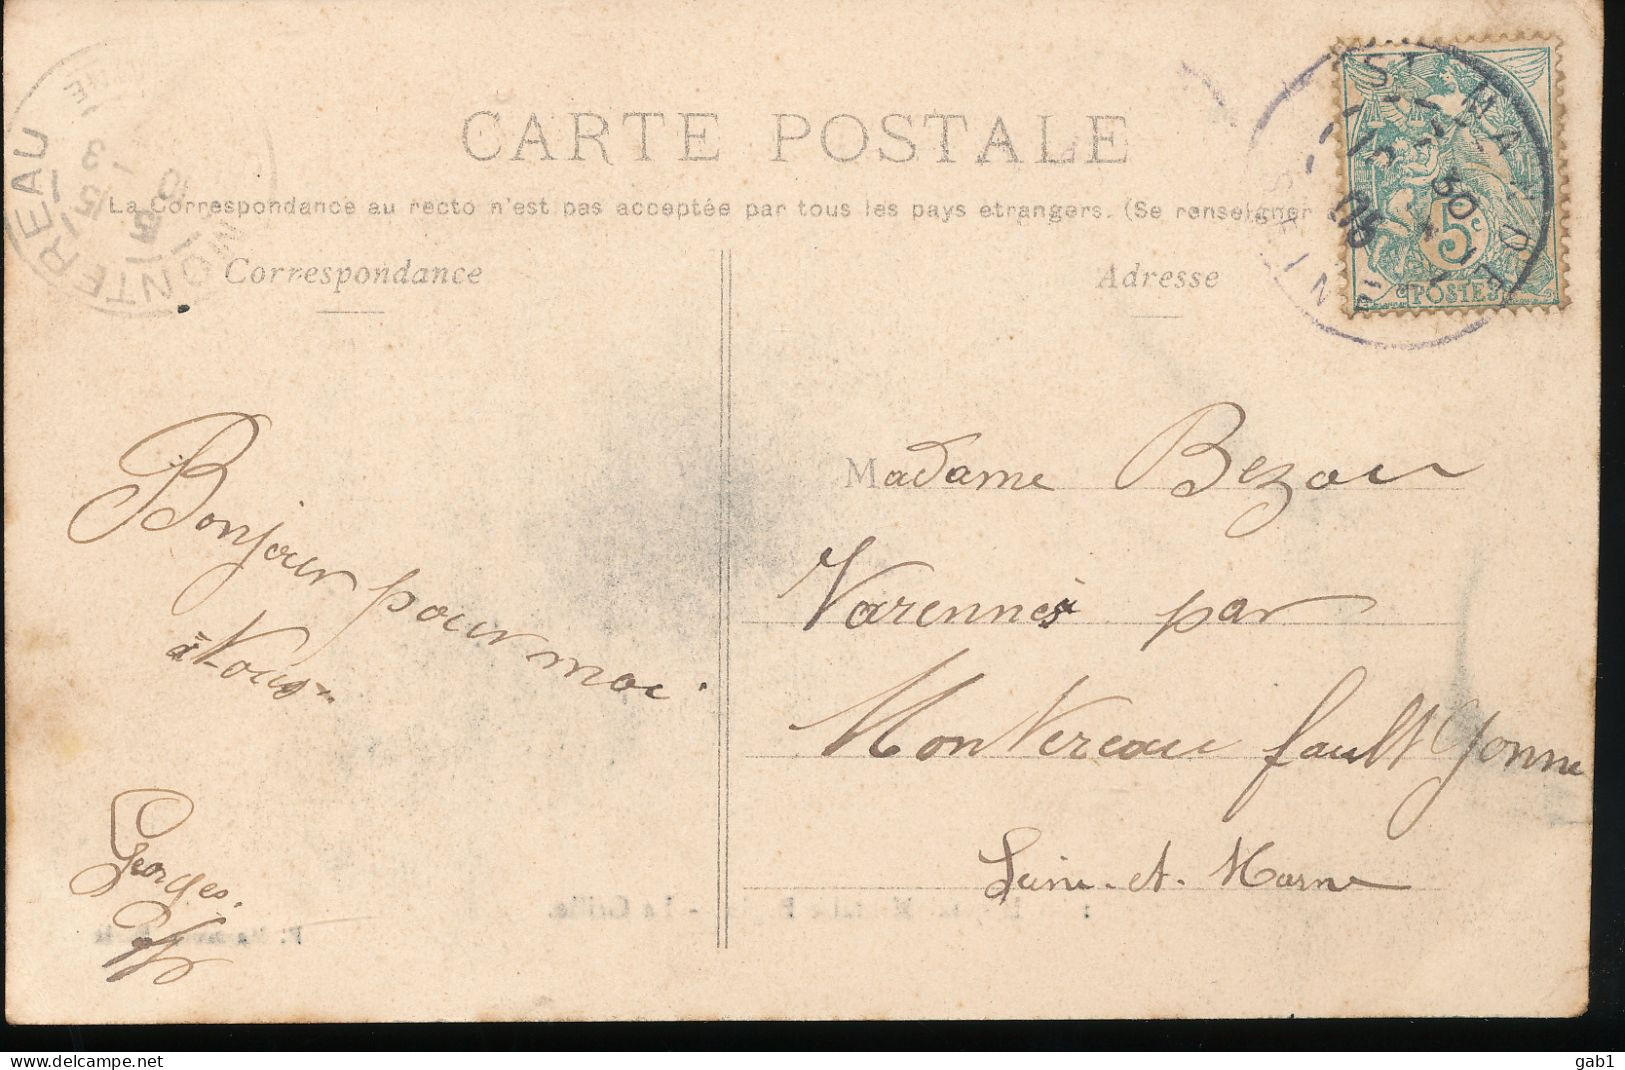 CARTE POSTALE
La Correspondance au recto n'est pas acceptée par tous les pays etrangers. (Se renseigner
Correspondance
Adresse
MONTEREAU
5c
POSTES
Bonjour pour moi.
à Vous
Georges.
Madame Bezou
Varennes par
Montereau fault Yonne
Seine-et-Marne
gab1